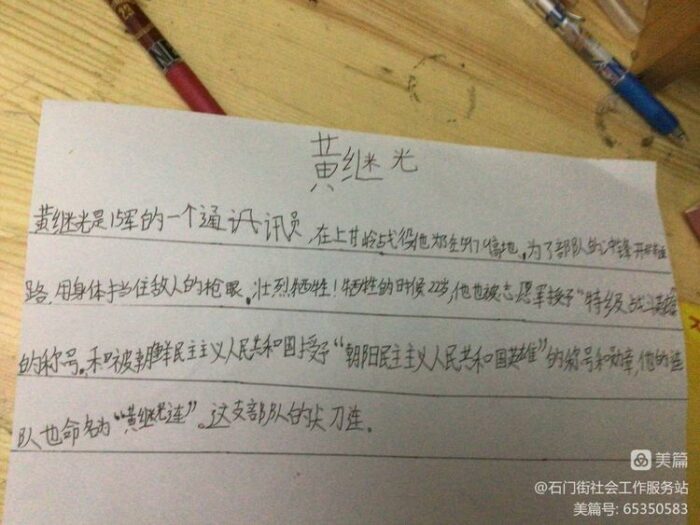 黄继光
黄继光是15军的一个通讯员,在上甘岭战役他为了部队的冲锋开
路,用身体挡住敌人的枪眼。壮烈牺牲!牺牲的时候22岁,他也被志愿军授予“特级战斗英雄”
的称号。和被朝鲜民主主义人民共和国授予“朝阳民主主义人民共和国英雄”的称号和勋章,他的连
队也命名为“黄继光连”。这支部队的尖刀连。
美篇
@石门街社会工作服务站
美篇号: 65350583